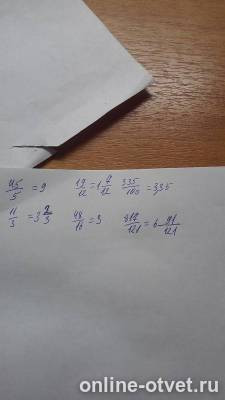 45/5 = 9 19/12 = 1 7/12 335/100 = 3,35
11/3 = 3 2/3 48/16 = 3 817/121 = 6 91/121
online-otvet.ru